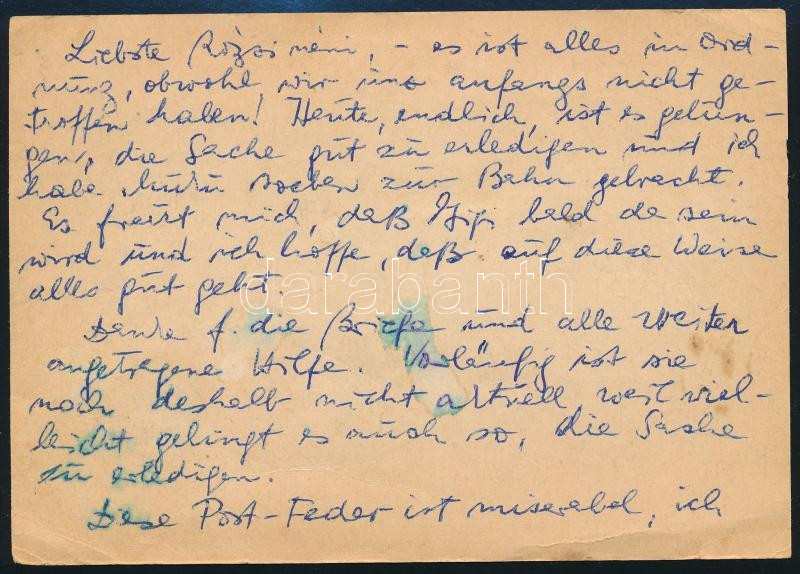 Liebste Rózsi néni, - es ist alles in Ord-
nung, obwohl wir uns anfangs nicht ge-
troffen haben! Heute, endlich, ist es gelun-
gen, die Sache gut zu erledigen und ich
habe soeben zur Bahn gebracht.
Es freut mich, daß Gigi bald da sein
wird und ich hoffe, daß auf diese Weise
alles gut geht.
Danke f. die Briefe und alle weiter
angetragene Hilfe. Vorläufig ist sie
noch deshalb nicht aktuell, weil viel-
leicht gelingt es auch so, die Sache
zu erledigen.
Diese Post-Feder ist miserabel, ich
darabanth